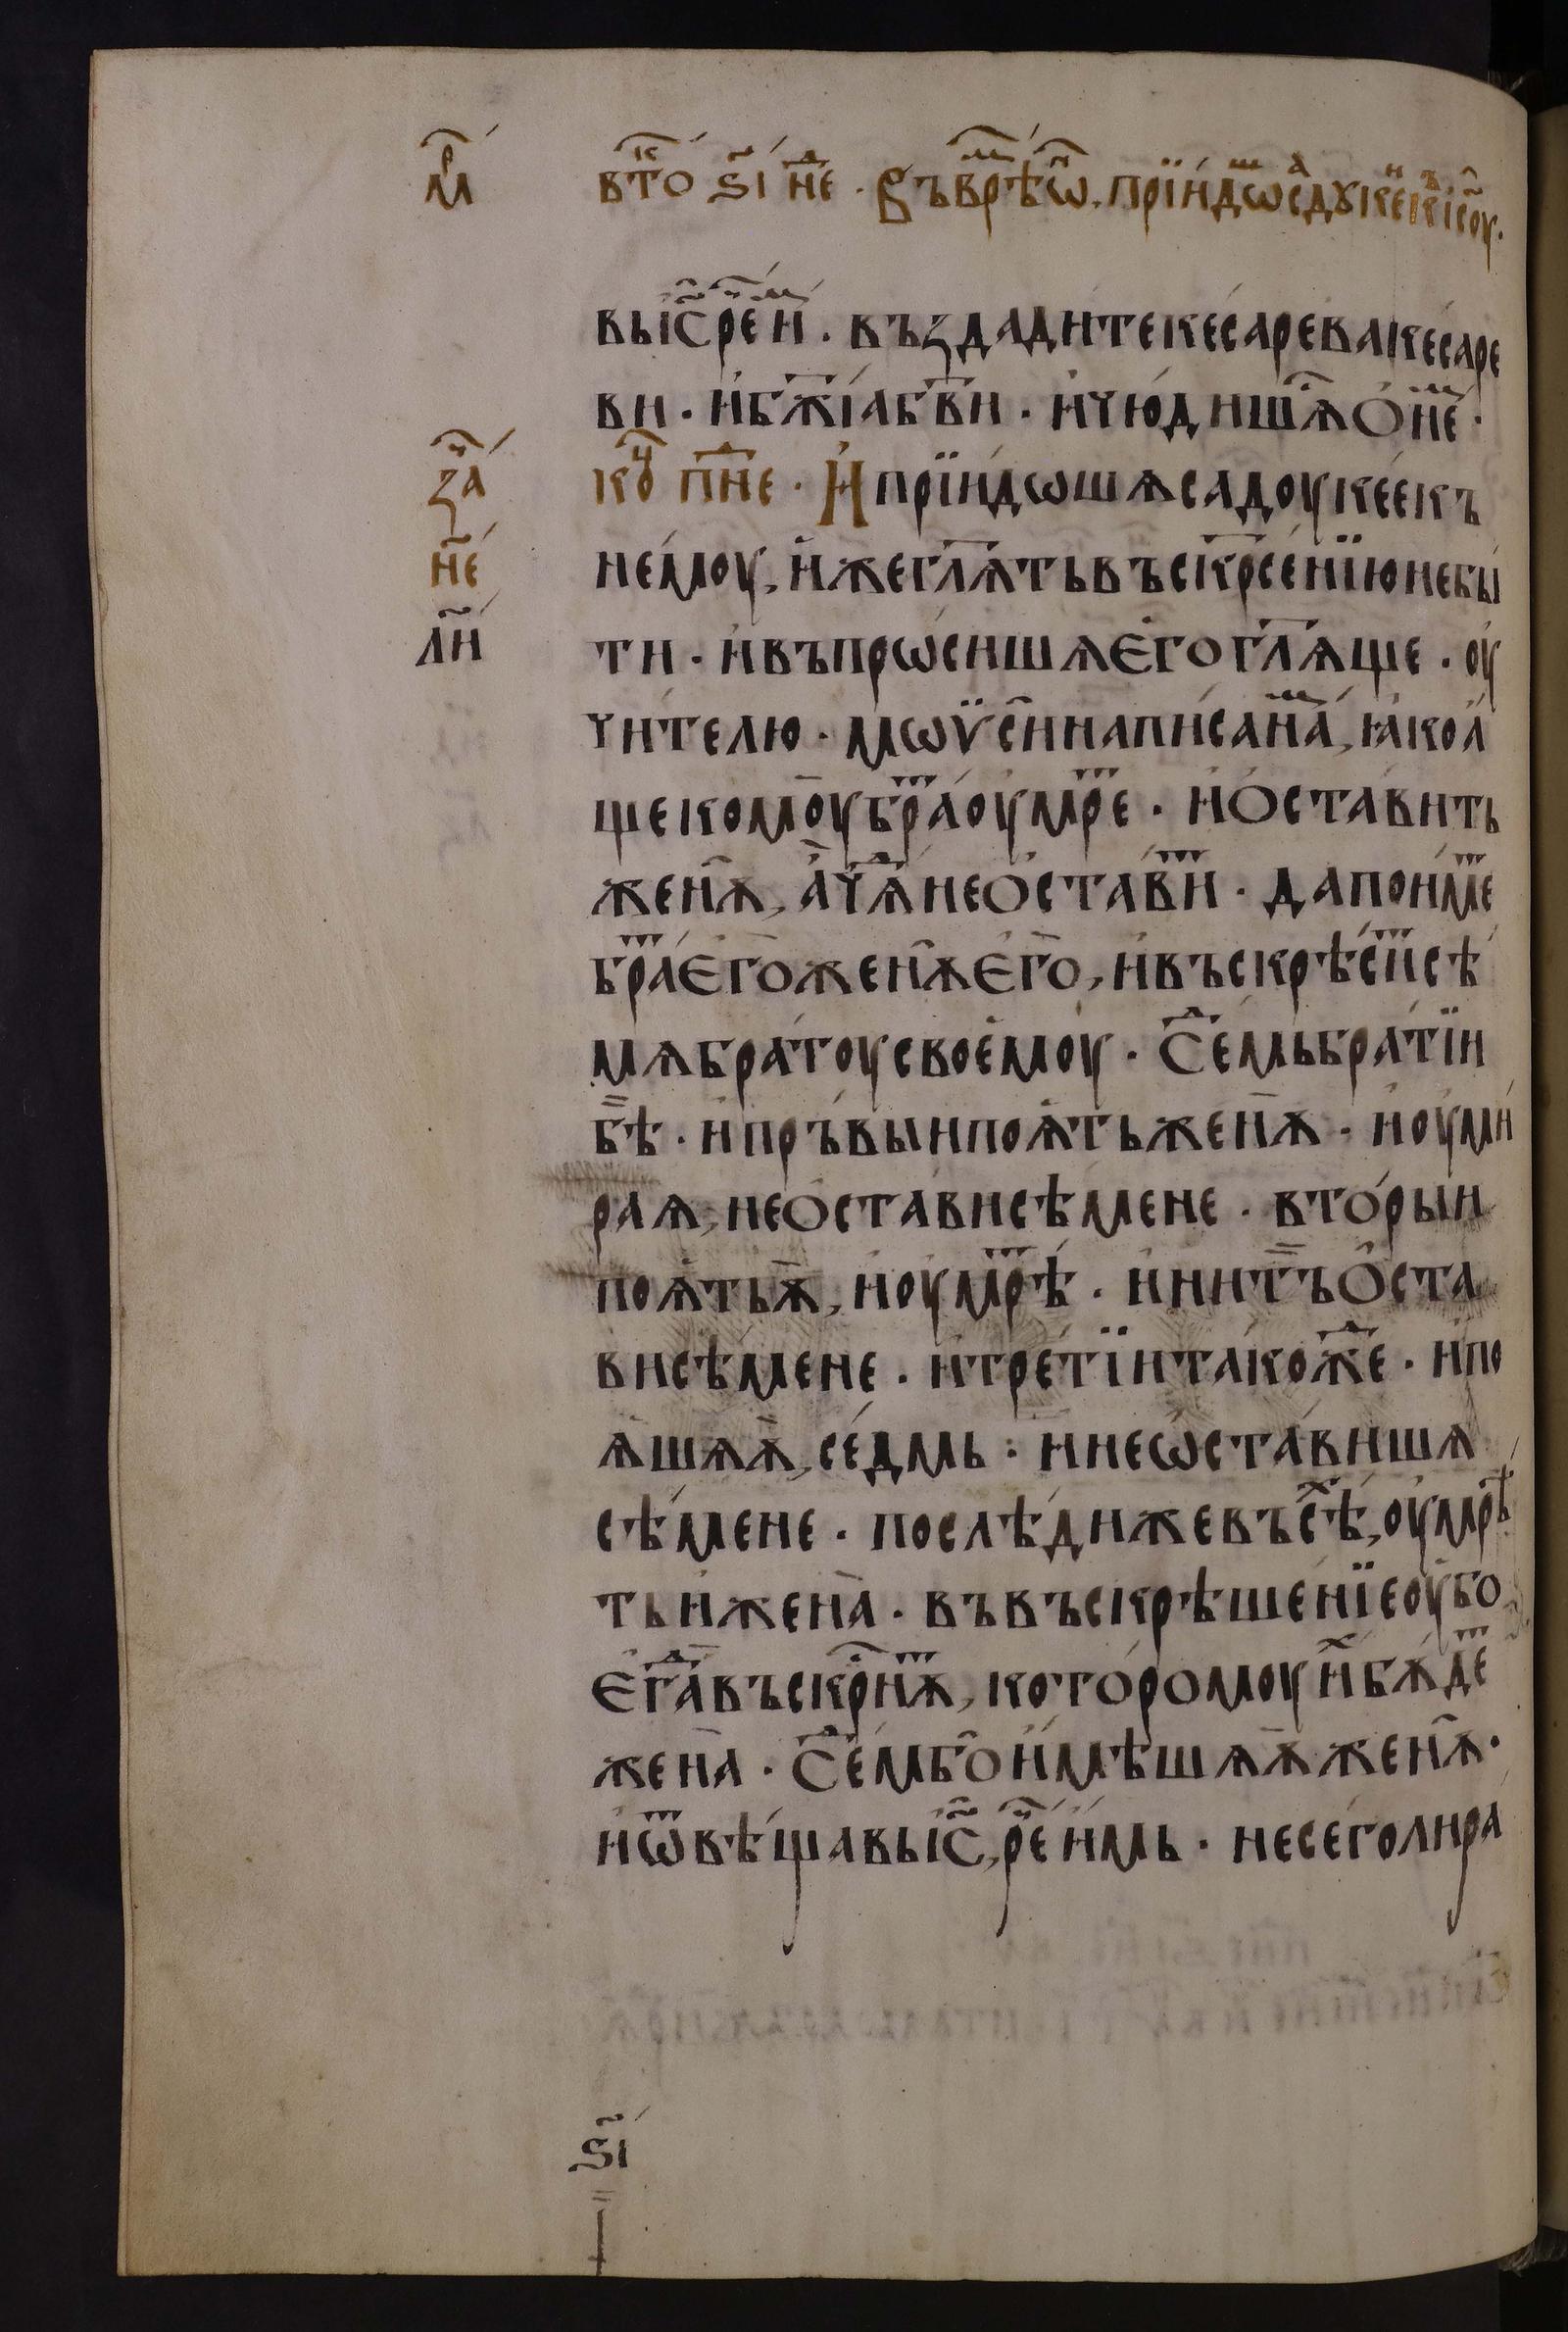 мⷬ҇ в̾тоⷦ҇ ѕ҃і нⷣе · Въврѣⷨѡⷩ҇, прїидѡⷲсаⷣдꙋкеиⷤкъі҃соу ·
выи҆с҃рече и҆ⷨ · въздадитекесаревакесаре
ви · и҆бж҃їабв҃и · и҆чюдишѧⷭ҇ѻ҆неⷨ ·
заⷱ҇ коⷰ҇ пнⷣе · И҆прїидошѧсадоукееекъ
н҃е немоу, и҆жегл҃ѧтьвъскрⷭ҇енїюнебы
л҃и ти · и҆въпрѡсишѧє҆гогл҃ѧще · оу҆
чителю · мѡѷсⷭ҇инаписанаⷨ, ꙗ҆коа҆
щекомоубраⷮоу҆мреⷮ · и҆ѻ҆ставить
женѫ, а҆чѧⷣнеѻ҆ставиⷮ · дапоимеⷮ
браⷮє҆гоженѫє҆го, и҆въскрѣсиⷮсѣ
мѧбратоусвоемоу · Сеⷣмьбратїи
бѣ · и҆пръвыипоѧтьженѫ · и҆оу҆ми
раѧ, неѻ҆стависѣмене · вторыи
поѧтьѫ, и҆оу҆мрѣⷮ · и҆нитъѻ҆ста
висѣмене · и҆третїитакожⷣе · и҆по
ѧшѧѫ, седмь : и҆неѡ҆ставишѧ
сѣмене · послѣдижевъсѣⷯ, оу҆мрѣ
тьи҆жена · въвъскрѣшенїеоу҆бо
є҆гаⷣвъскрⷭ҇нѫⷮ, которомоуиⷯбѫдеⷮ
жена · Сеⷣмьбоимѣшѧѫженѫ ·
и҆ѿвѣщавыи҆с҃, речеимь · несеголира
ѕ҃і